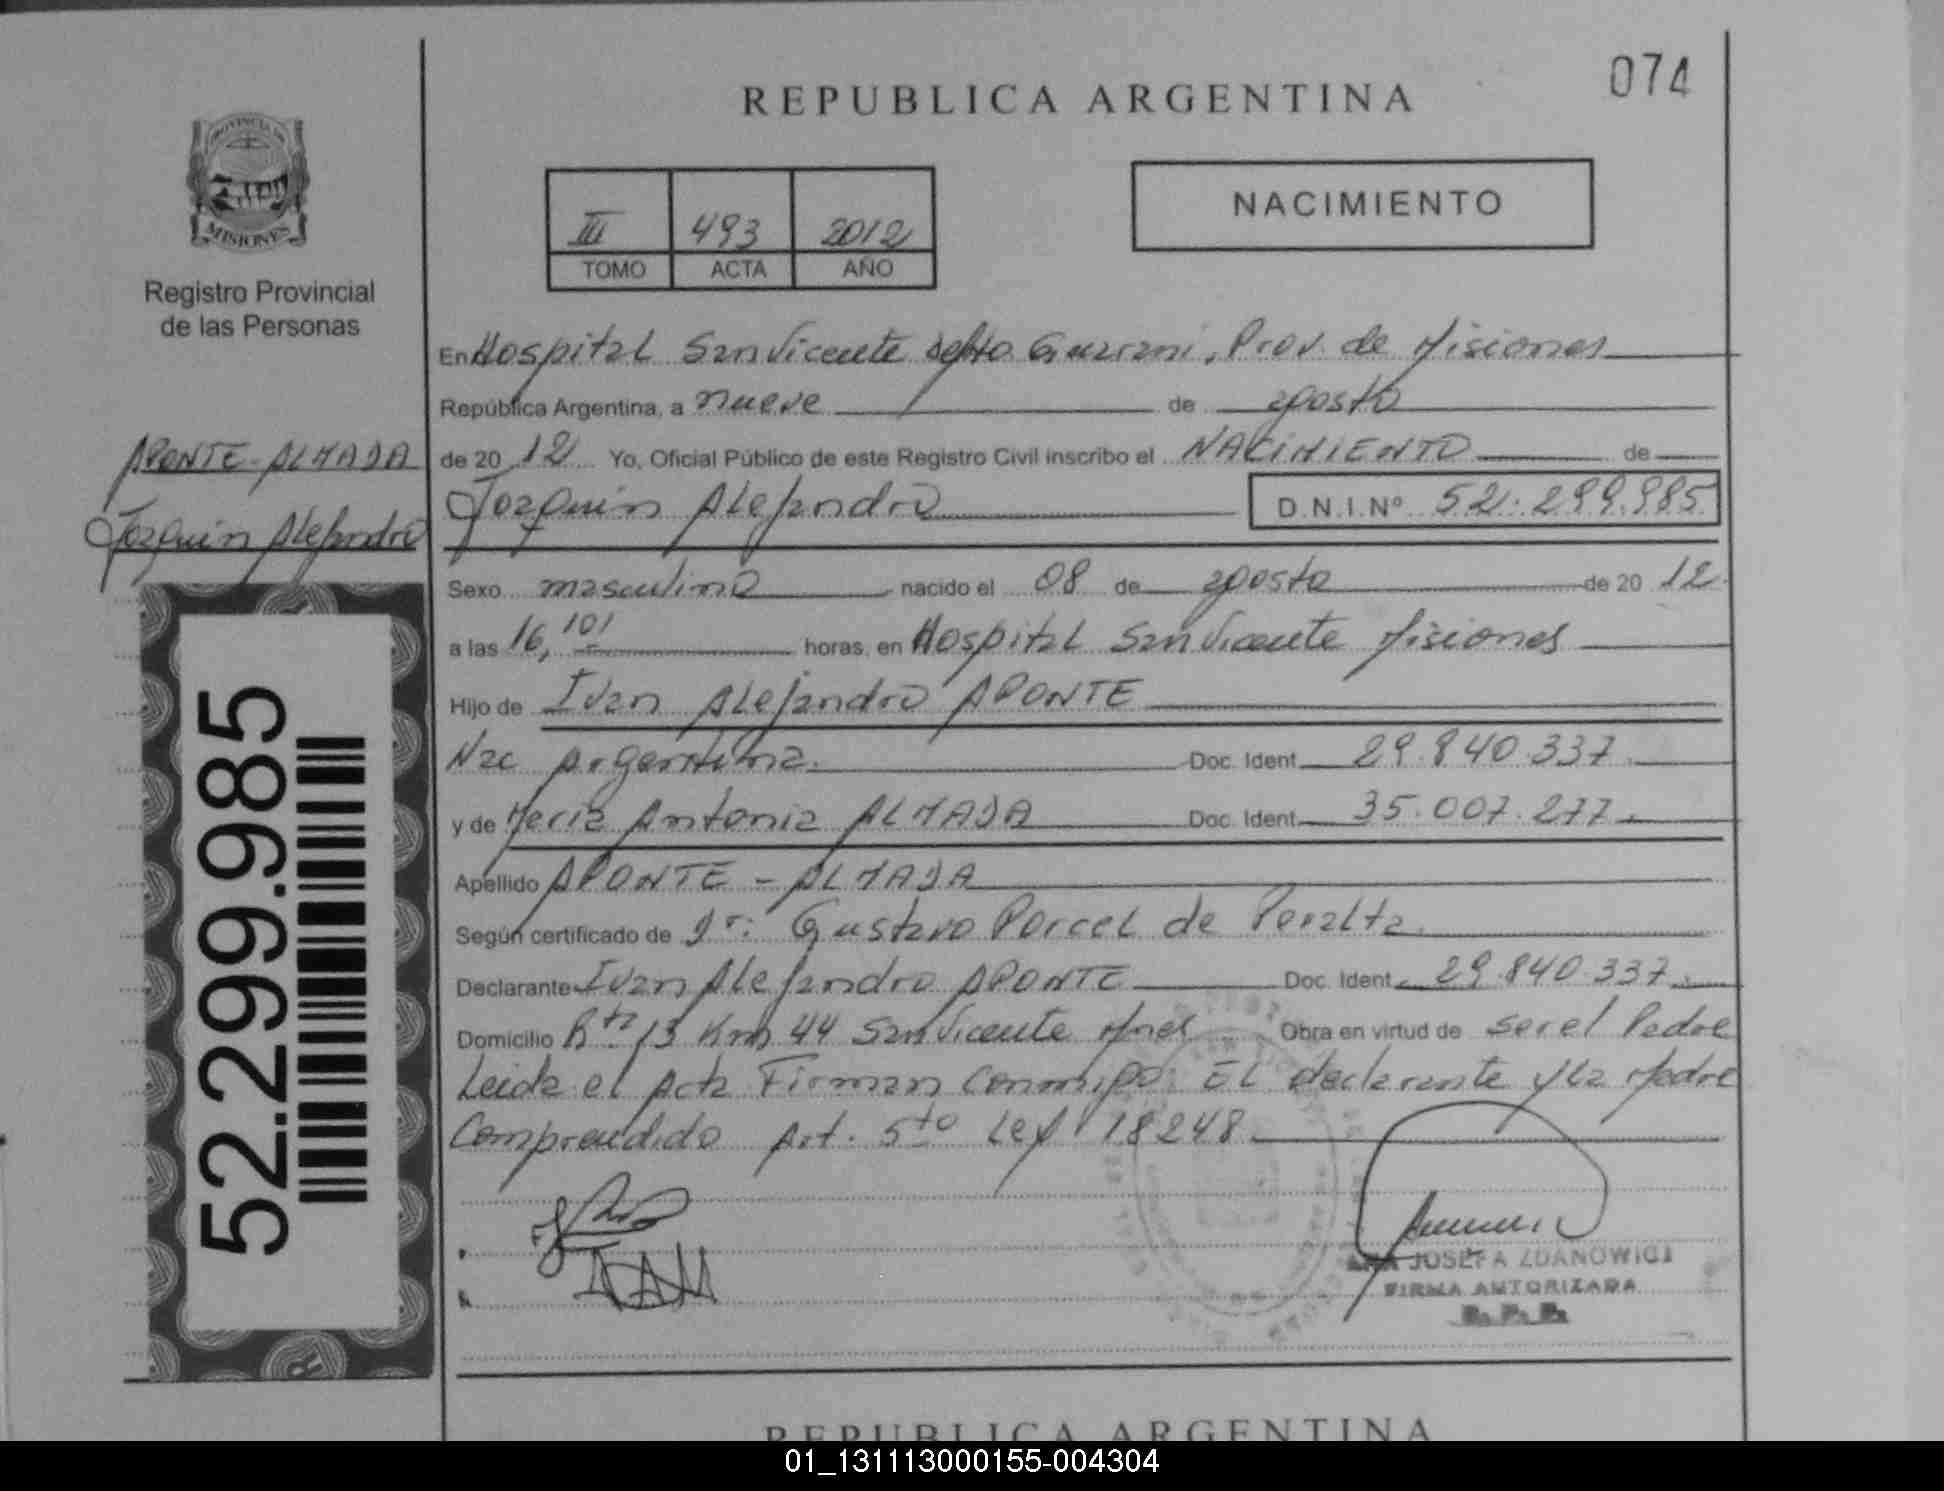 074
REPUBLICA ARGENTINA
PROVINCIA DE
MISIONES
Registro Provincial
de las Personas
III 493 2012
TOMO ACTA AÑO
NACIMIENTO
En Hospital San Vicente depto Guarani, Prov. de Misiones
República Argentina, a nueve de agosto
de 20 12 Yo, Oficial Público de este Registro Civil inscribo el NACIMIENTO de
APONTE-ALMADA
Joaquin Alejandro
Joaquin Alejandro D.N.I.Nº 52.299.985
Sexo masculino nacido el 08 de agosto de 20 12
a las 16, 101 horas, en Hospital San Vicente Misiones
Hijo de Ivan Alejandro APONTE
Nac Argentina. Doc. Ident. 29.840.337.
y de Maria Antonia ALMADA Doc. Ident. 35.007.277.
Apellido APONTE - ALMADA
Según certificado de Dr: Gustavo Porcel de Peralta.
Declarante Ivan Alejandro APONTE Doc. Ident. 29.840.337.
Domicilio Rta 13 Km 44 San Vicente Mnes Obra en virtud de ser el Padre
Leida el Acta Firman Conmigo: El declarante y la Madre
Comprendido Art. 5to Ley 18248
52.299.985
ANA JOSEFA ZDANOWICZ
FIRMA AUTORIZADA
R. P. P.
REPUBLICA ARGENTINA
01_131113000155-004304